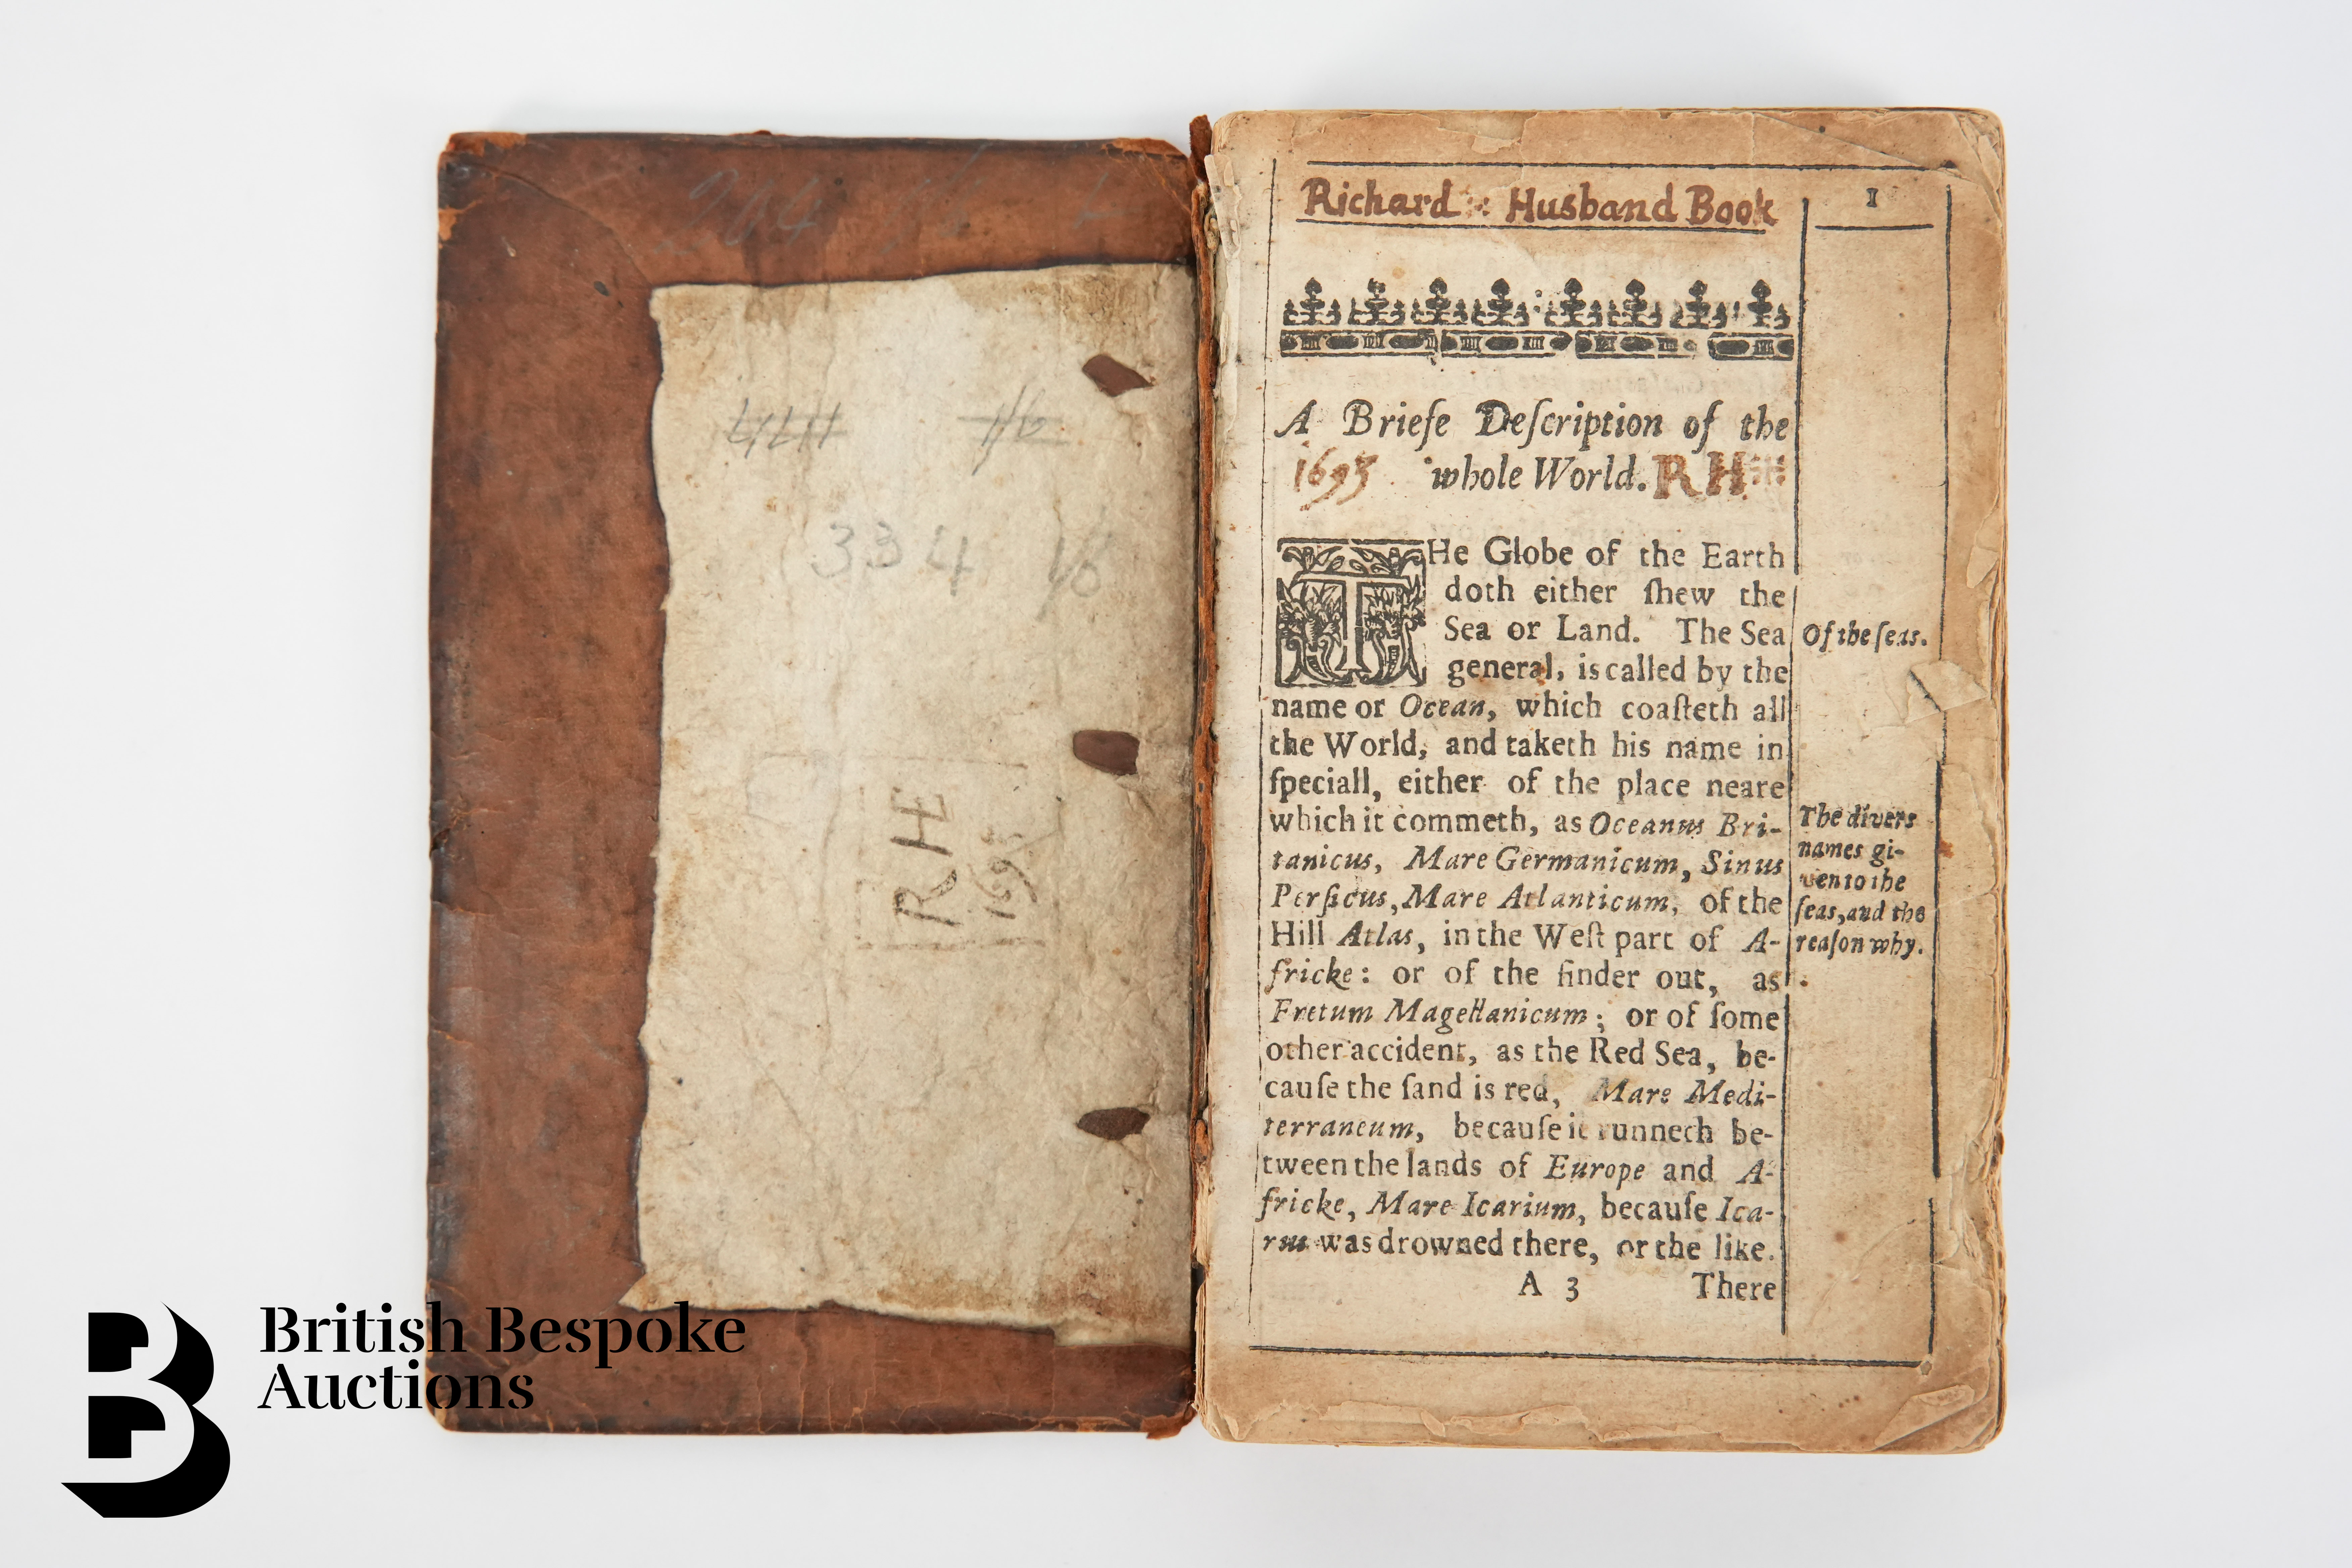 334
RHE
1695
Richard : Husband Book
1
A Briefe Deſcription of the
1695 whole World. RH
THe Globe of the Earth
doth either ſhew the
Sea or Land. The Sea
general, is called by the
name or Ocean, which coaſteth all
the World, and taketh his name in
ſpeciall, either of the place neare
which it commeth, as Oceanus Bri-
tanicus, Mare Germanicum, Sinus
Perſicus, Mare Atlanticum, of the
Hill Atlas, in the Weſt part of A-
fricke: or of the finder out, as
Fretum Magellanicum; or of ſome
other accident, as the Red Sea, be-
cauſe the ſand is red, Mare Medi-
terraneum, becauſe it runneth be-
tween the lands of Europe and A-
fricke, Mare Icarium, becauſe Ica-
rus was drowned there, or the like.
A 3 There
Of the ſeas.
The divers
names gi-
ven to the
ſeas, and the
reaſon why.
British Bespoke
Auctions